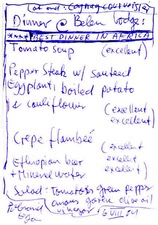 Dinner @ Belen Lodge:
BEST DINNER IN AFRICA
Tomato soup (excellent)
Pepper Steak w/ sauteed
Eggplant, boiled potato
& cauliflower (excellent
excellent)
Crepe flambeé (excellent
excellent
Ethiopian beer excellent)
+ Mineral water
Salad: Tomatoes green pepper
onions garlic olive oil
vinegar